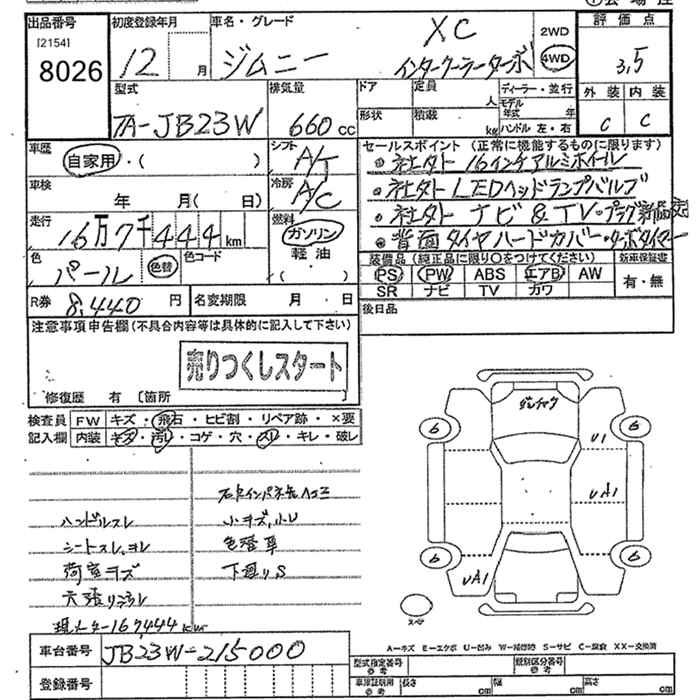 出品番号
[2154]
8026
初度登録年月
12 月
車名・グレード
ジムニー
XC
インタークーラーターボ
2WD
4WD
評価点
3.5
外装 内装
C C
型式
TA-JB23W
排気量
660 cc
ドア
形状
定員 人
積載 kg
ディーラー・並行
モデル年式 年
ハンドル 左・右
車歴
自家用・( )
シフト
A/T
車検
年 月( 日)
冷房
A/C
走行
16万7千444km
燃料
ガソリン
軽油
( )
色
パール
色替
色コード
R券
8,440 円
名変期限 月 日
セールスポイント (正常に機能するものに限ります)
社外 16インチアルミホイール
社外 LEDヘッドランプバルブ
社外 ナビ&TV・プラグ新品
背面タイヤハードカバー・ターボタイマー
装備品 (純正品に限り○をつけてください)
PS PW ABS エアB AW
SR ナビ TV カワ
新車保証書
有・無
後日品
注意事項申告欄 (不具合内容等は具体的に記入して下さい)
売りつくしスタート
修復歴 有 [箇所 ]
検査員
記入欄
FW キズ・飛石・ヒビ割・リペア跡・×要
内装 キズ・汚レ・コゲ・穴・スレ・キレ・破レ
ハンドルスレ
シートスレ,ヨレ
荷室キズ
現メーター167444km
小キズ,小凹
色替車
下廻りS
6
6
6
6
U1
UA1
UA1
スペア
A=キズ E=エクボ U=凹み W=補修跡 S=サビ C=腐食 XX=交換済
車台番号
JB23W-215000
登録番号
型式指定番号
類別区分番号
車庫証明用
参考
長さ cm
幅 cm
高さ cm